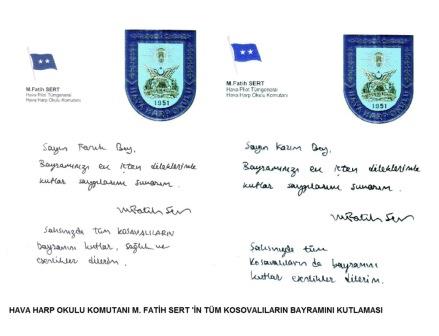 M.Fatih SERT
Hava Pilot Tümgeneral
Hava Harp Okulu Komutanı
1951
HAVA HARP OKULU
Sayın Faruk Bey,
Bayramınızı en içten dileklerimle
kutlar saygılarımı sunarım.
M.Fatih Sert
Şahsınızda tüm KOSAVALILARIN
bayramını kutlar, sağlık ve
esenlikler dilerim.
M.Fatih SERT
Hava Pilot Tümgeneral
Hava Harp Okulu Komutanı
1951
HAVA HARP OKULU
Sayın Kazım Bey,
Bayramınızı en içten dileklerimle
kutlar saygılarımı sunarım.
M.Fatih Sert
Şahsınızda tüm
Kosavalıların da bayramını
kutlar esenlikler dilerim.
HAVA HARP OKULU KOMUTANI M. FATİH SERT 'İN TÜM KOSOVALILARIN BAYRAMINI KUTLAMASI